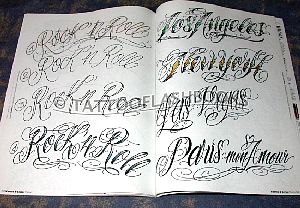 Rock'n'Roll
Rock'n'Roll
Rock'n Roll
Rock'n Roll
Los Angeles
New York
Las Vegas
Paris mon Amour
TATTOOFLASHBOOKS